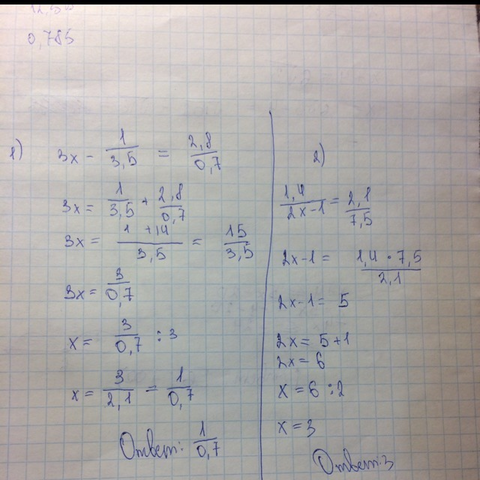 0,785
1)
3x - 1/3,5 = 2,8/0,7
3x = 1/3,5 + 2,8/0,7
3x = 1+14/3,5 = 15/3,5
3x = 3/0,7
x = 3/0,7 : 3
x = 3/2,1 = 1/0,7
Ответ: 1/0,7
2)
1,4/2x-1 = 2,1/7,5
2x-1 = 1,4 · 7,5/2,1
2x-1 = 5
2x = 5+1
2x = 6
x = 6 : 2
x = 3
Ответ: 3